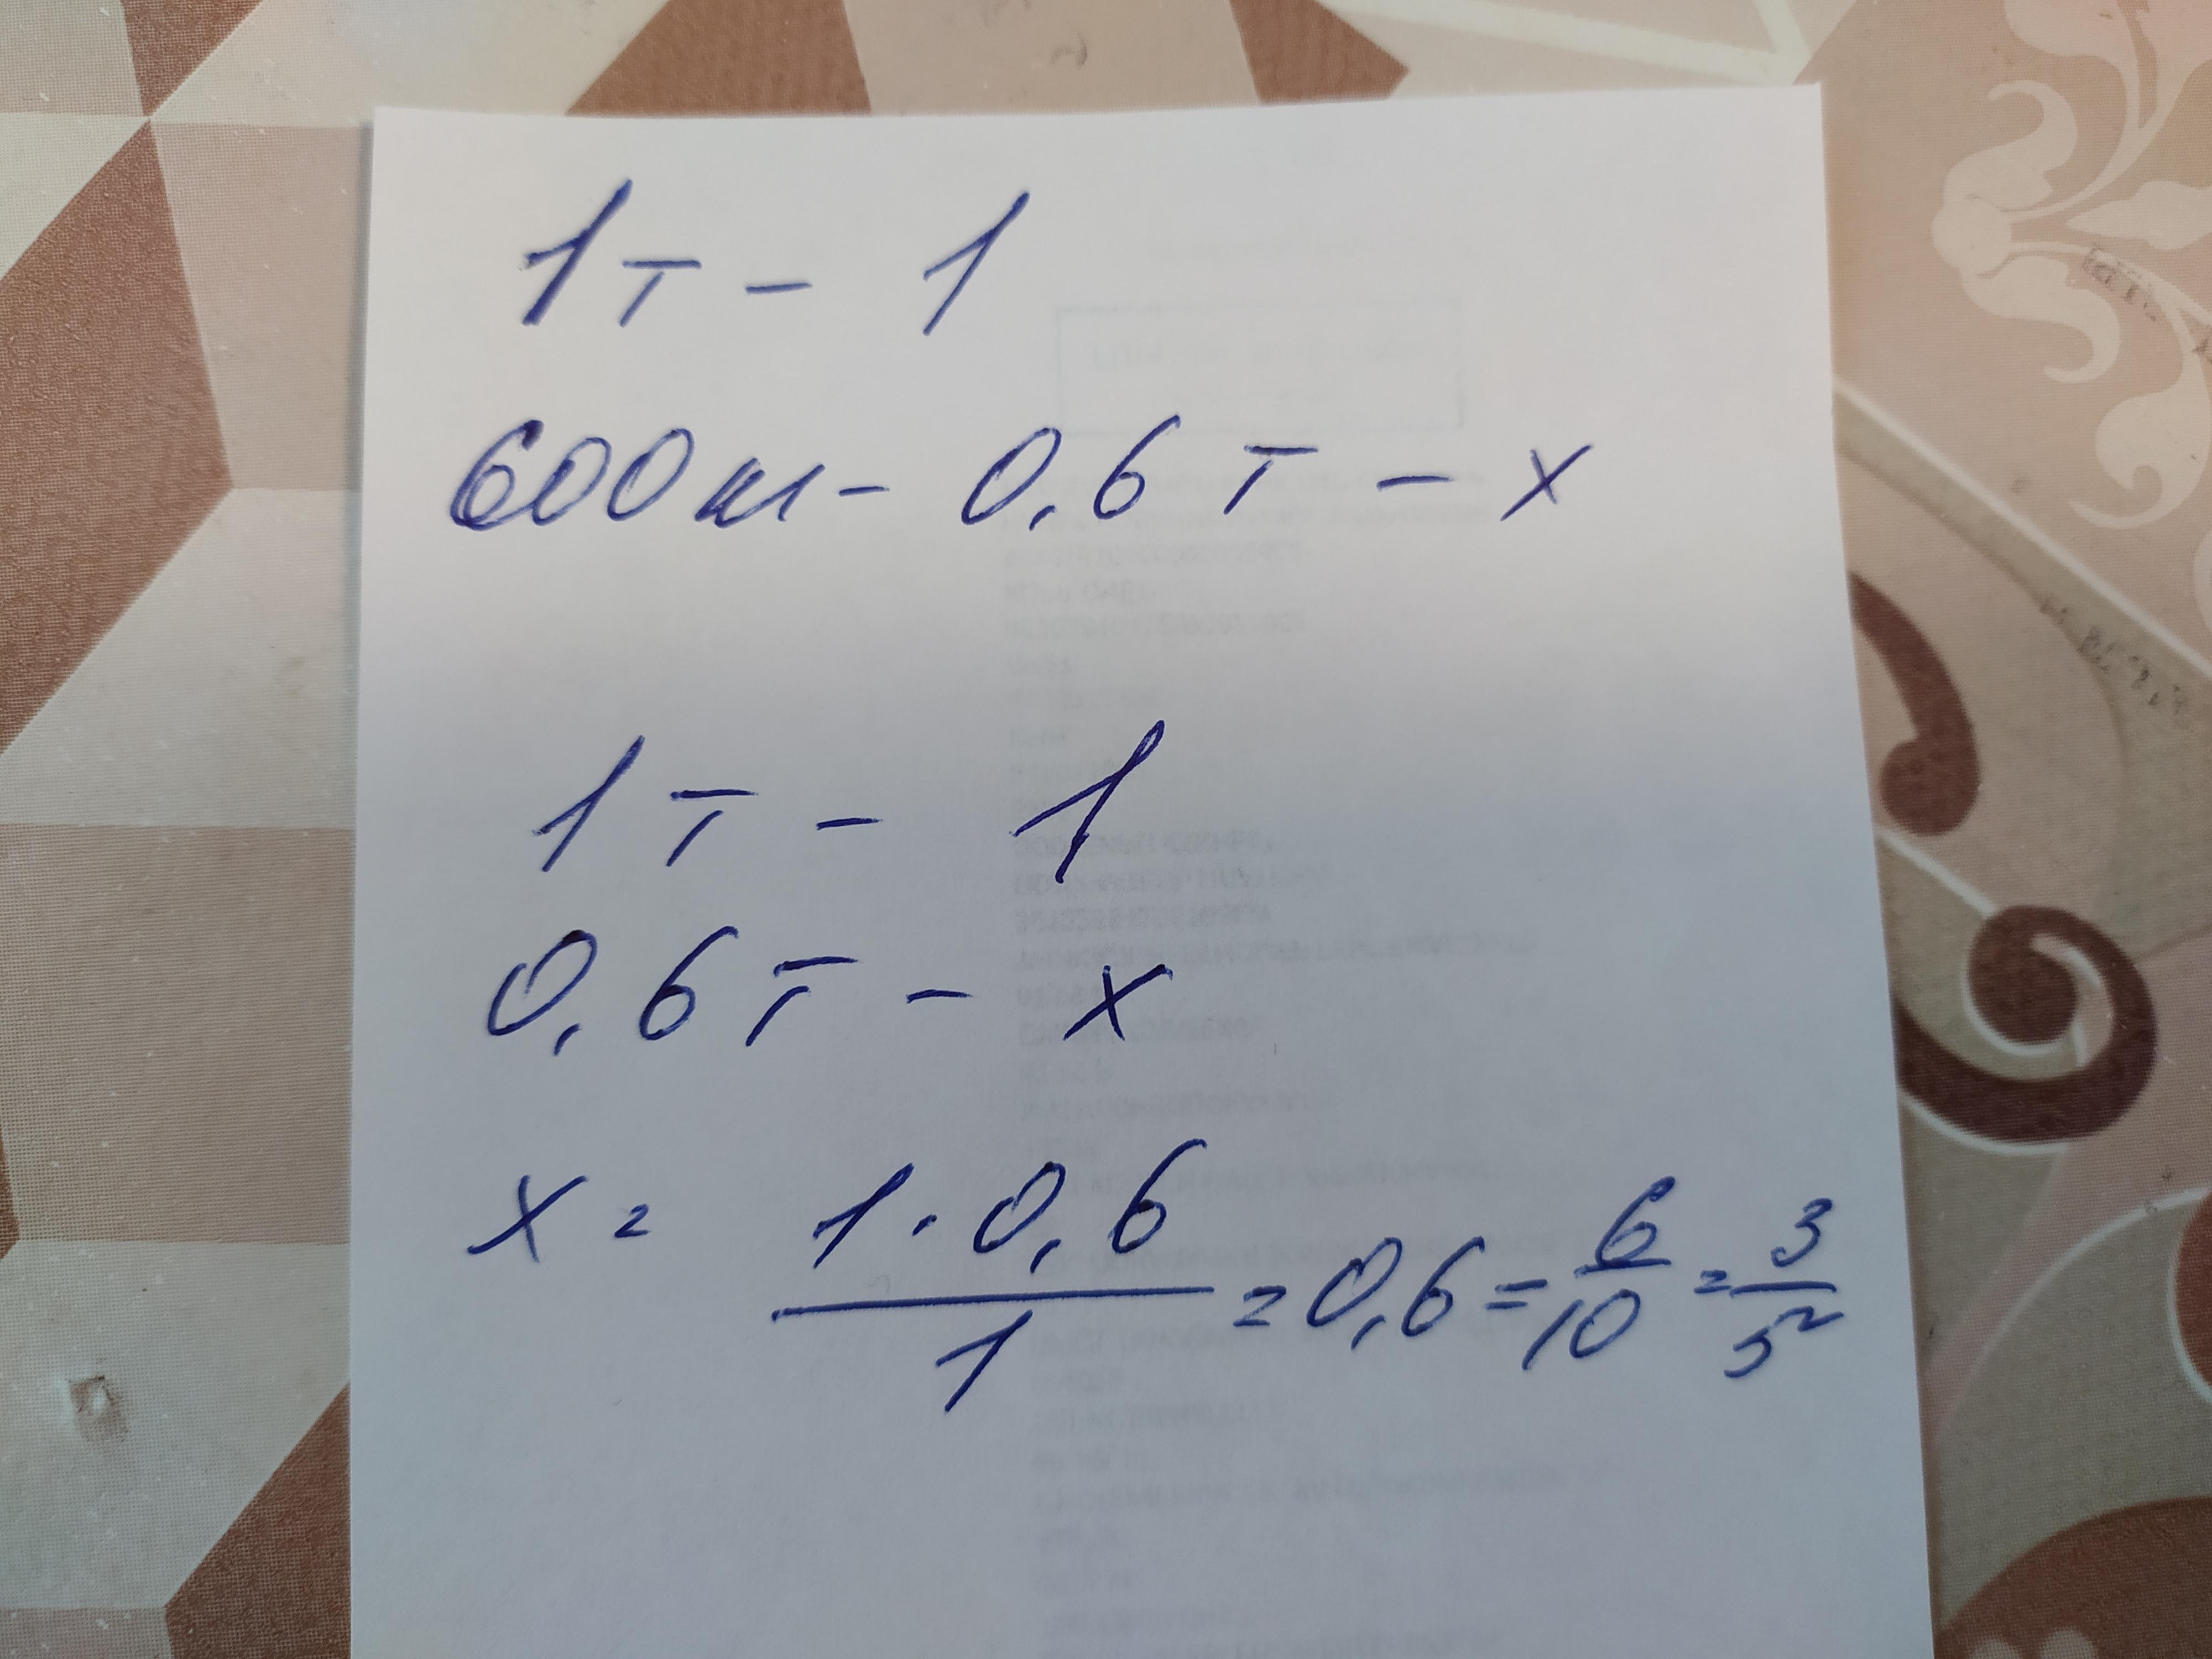 1т - 1
600кг - 0,6т - x
1т - 1
0,6т - x
x = 1·0,6/1 = 0,6 = 6/10 = 3/5